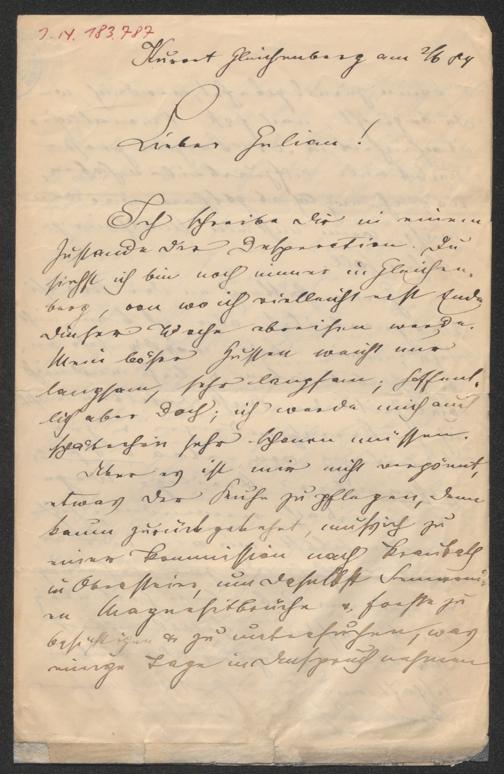 I.N. 183.787
Kurort Gleichenberg am 2/6 84
Lieber Julian!
Ich schreibe Dir in einem
Zustande der Desperation. Du
siehst ich bin noch immer in Gleichen-
berg, von wo ich vielleicht erst Ende
dieser Woche abreisen werde.
Mein böser Husten weicht nur
langsam, sehr langsam; hoffent-
lich aber doch; ich werde mich auch
späterhin sehr schonen müssen.
Aber es ist mir nicht vergönnt,
etwas der Ruhe zu pflegen, denn
kaum zurückgekehrt, muß ich zu
einer Kommission nach Kraubath
in Obersteier, um daselbst
Magnesitbrüche u. Forste zu
besichtigen & zu untersuchen, was
einige Tage in Anspruch nehmen